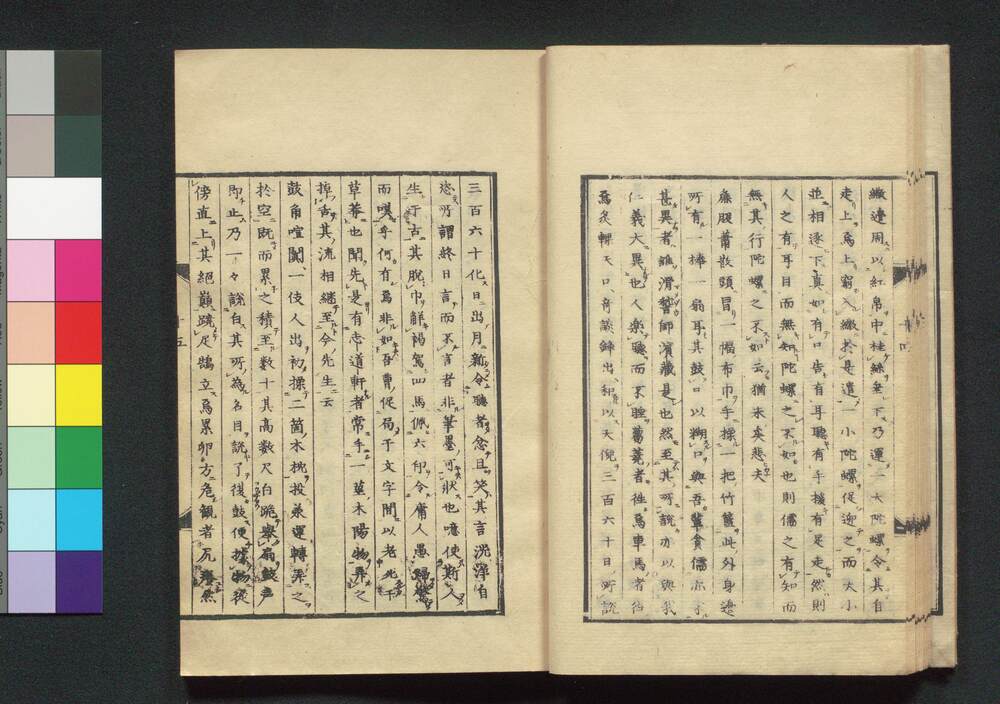 繖邊周以紅帛中挂絲垂下乃運一大陀螺令其自
走上焉上窮入繖於是遣一小陀螺促迎之而大小
並相逐下真如有口告有耳聽有手機有足走然則
人之有耳目而無知陀螺之不如也則儒之有知而
無其行陀螺之不如云猶未矣悲夫
廉腹蕭散頭冒一幅布巾手操一把竹籃此外身邊
所有一棒一扇耳其鼓口以糊口與吾輩貪儒亦
甚異者雖滑稽師濱藏是也然至其所說亦以與我
仁義大異也人樂聽而不睡蒭蕘者往焉車馬者
焉炙輠天口奇談錚出和以天倪三百六十日所說
三百六十化日出月新令聽者忿且笑其言洸洋自
恣所謂終日言而不言者非筆墨可狀也噫使斯人
生于古其脫巾解褐駕四馬佩六印令庸人愚婦驚
而嘆乎何有焉非如吾曹促局于文字間以老死于
草菴也聞先是有志道軒者常手一莖木陽物弄之
掉舌其流相継至今先生云
鼓角喧闐一伎人出初操二箇木枕投弄運轉弄之
於空既而累之積至數十其高數尺白跪舉扇鼓声
即止乃一々説白其所為名目説了後鼓便據物從
傍直上其絕巔蹺足鵠立焉累卵方危観者尻
十四
十五